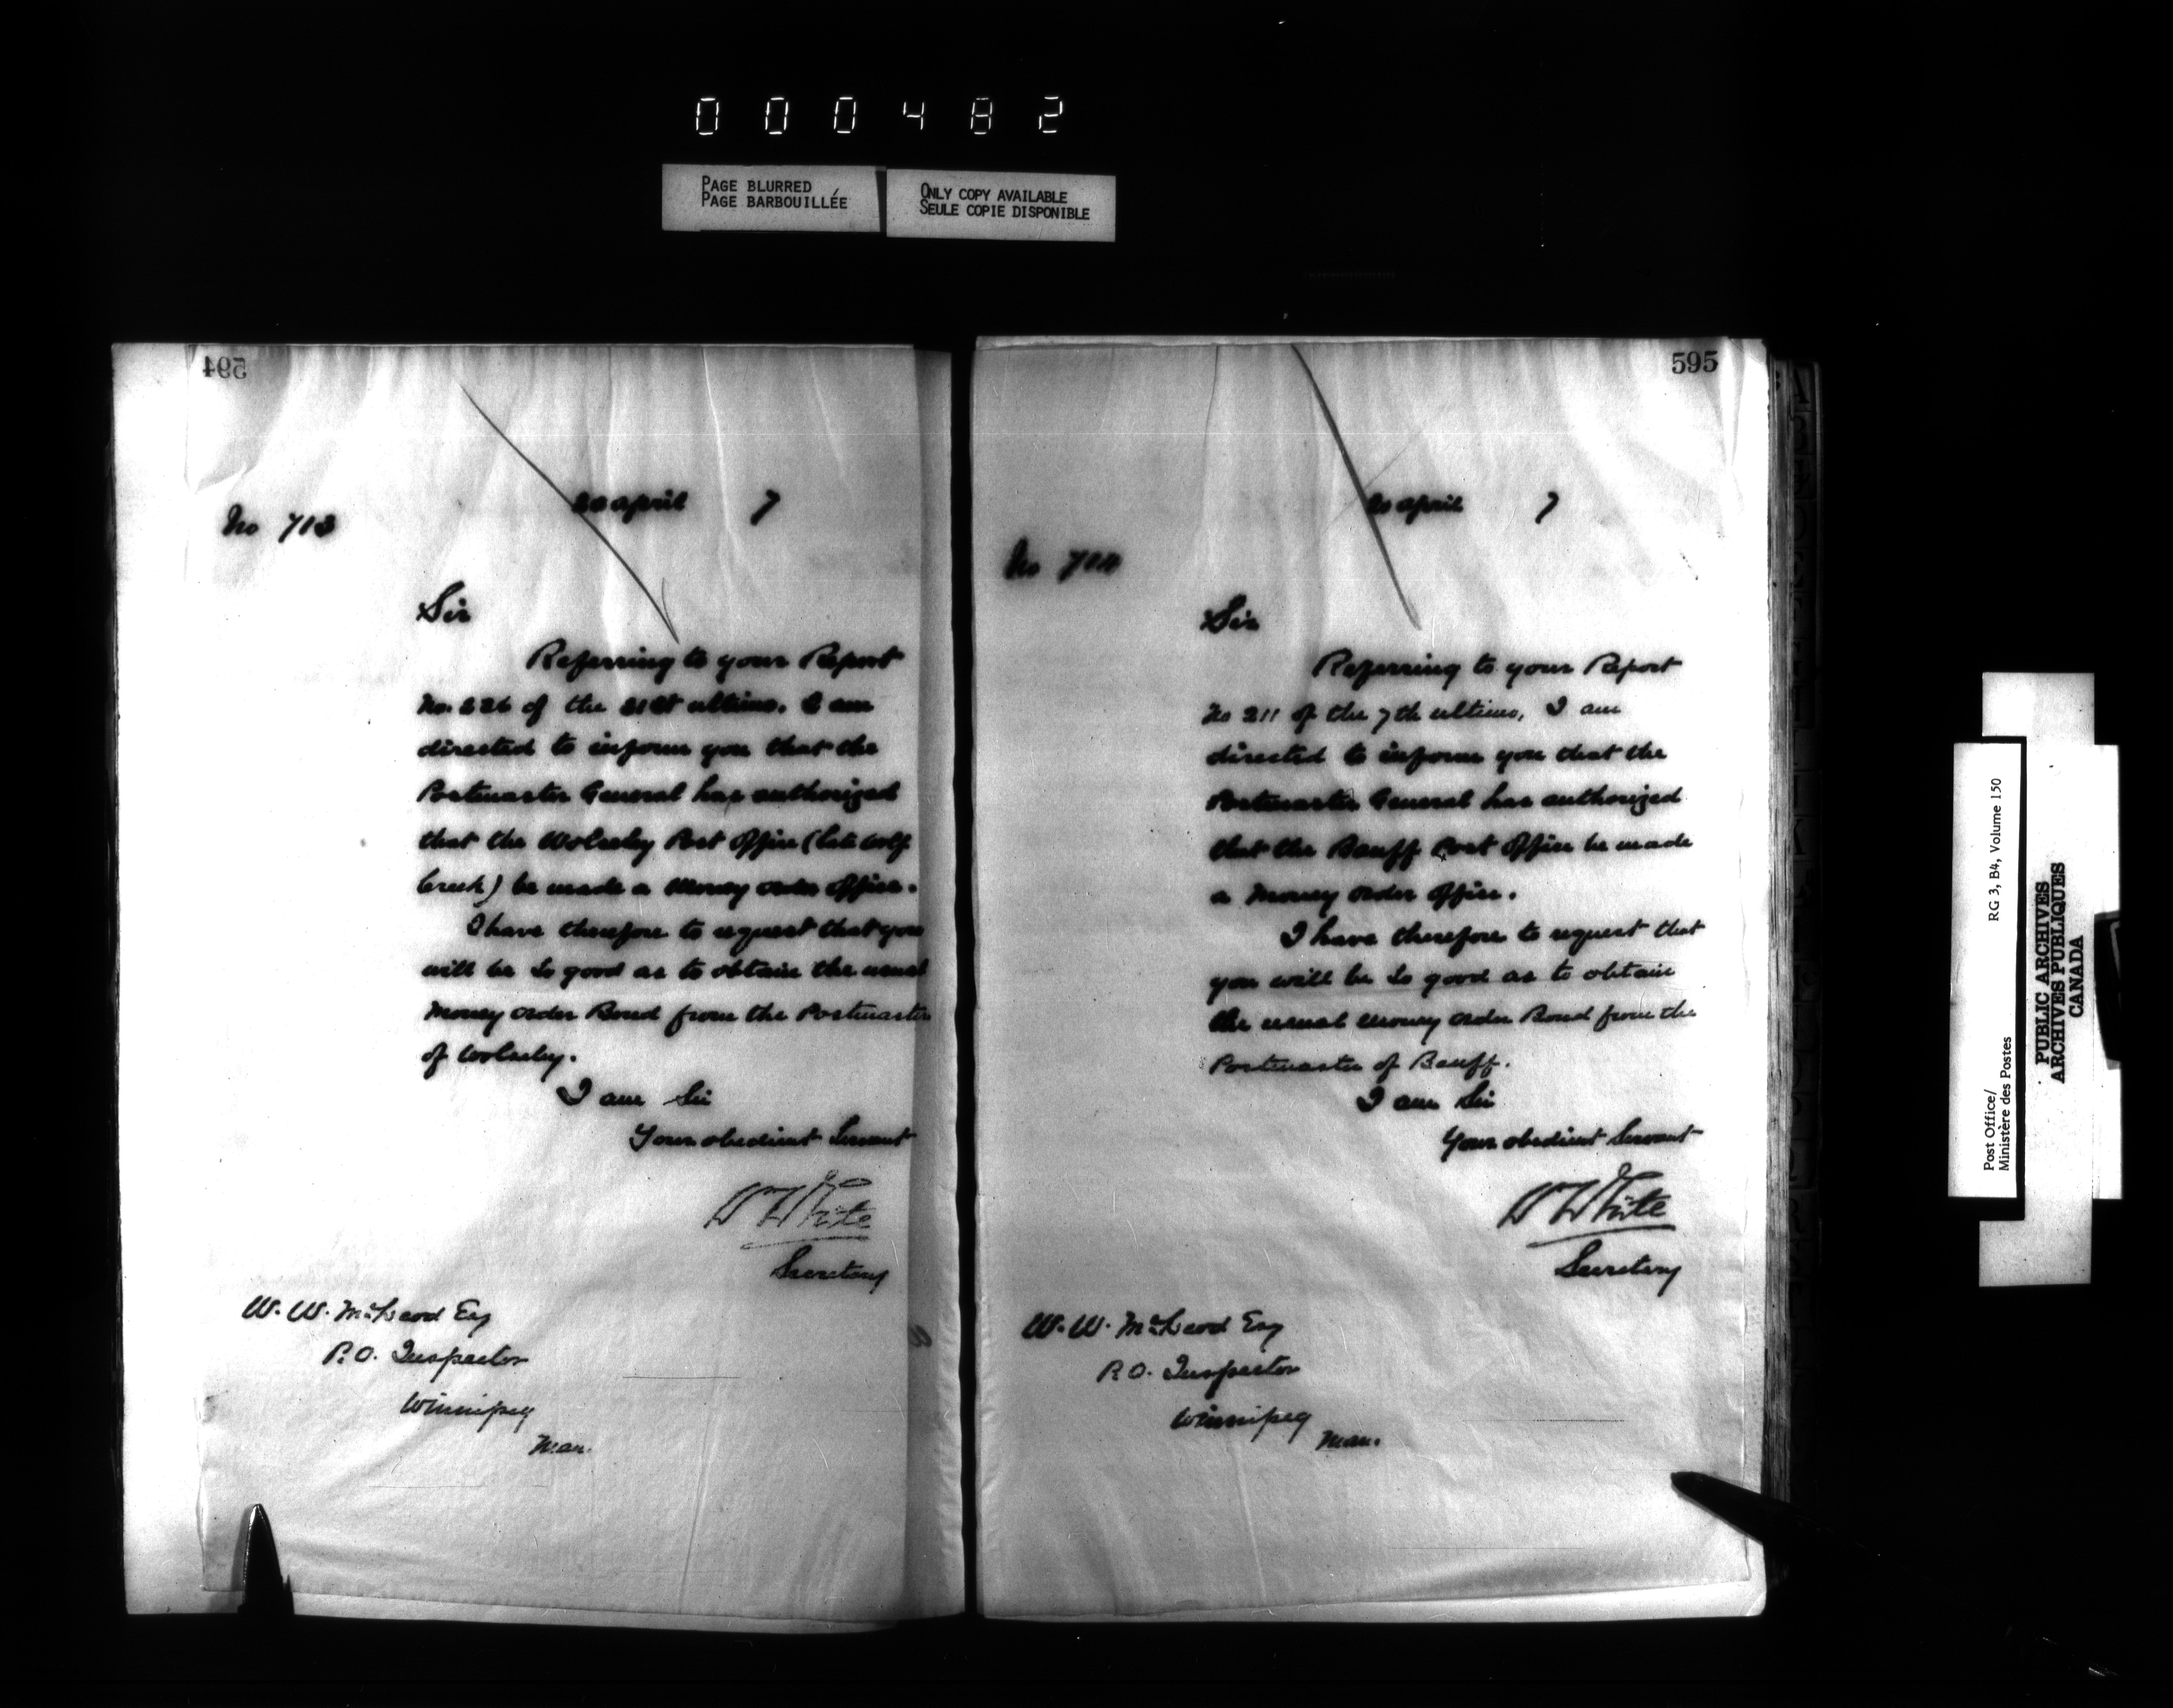 000482
PAGE BLURRED
PAGE BARBOUILLÉE
ONLY COPY AVAILABLE
SEULE COPIE DISPONIBLE
594
20 April 7
No 713
Sir
Referring to your Report
No. 226 of the 21st ultimo. I am
directed to inform you that the
Postmaster General has authorized
that the Wolseley Post Office (late Wolf
Creek) be made a Money Order Office.
I have therefore to request that you
will be so good as to obtain the usual
Money Order Bond from the Postmaster
of Wolseley.
I am Sir
Your obedient Servant
W White
Secretary
W. W. McLeod Esq
P.O. Inspector
Winnipeg
Man.
595
20 April 7
No
Sir
Referring to your Report
No 211 of the 7th ultimo, I am
directed to inform you that the
Postmaster General has authorized
that the Banff Post Office be made
a Money Order Office.
I have therefore to request that
you will be so good as to obtain
the usual Money Order Bond from the
Postmaster of Banff.
I am Sir
Your obedient Servant
W White
Secretary
W. W. McLeod Esq
P.O. Inspector
Winnipeg
Man.
Post Office/ RG 3, B4, Volume 150
Ministère des Postes
PUBLIC ARCHIVES
ARCHIVES PUBLIQUES
CANADA